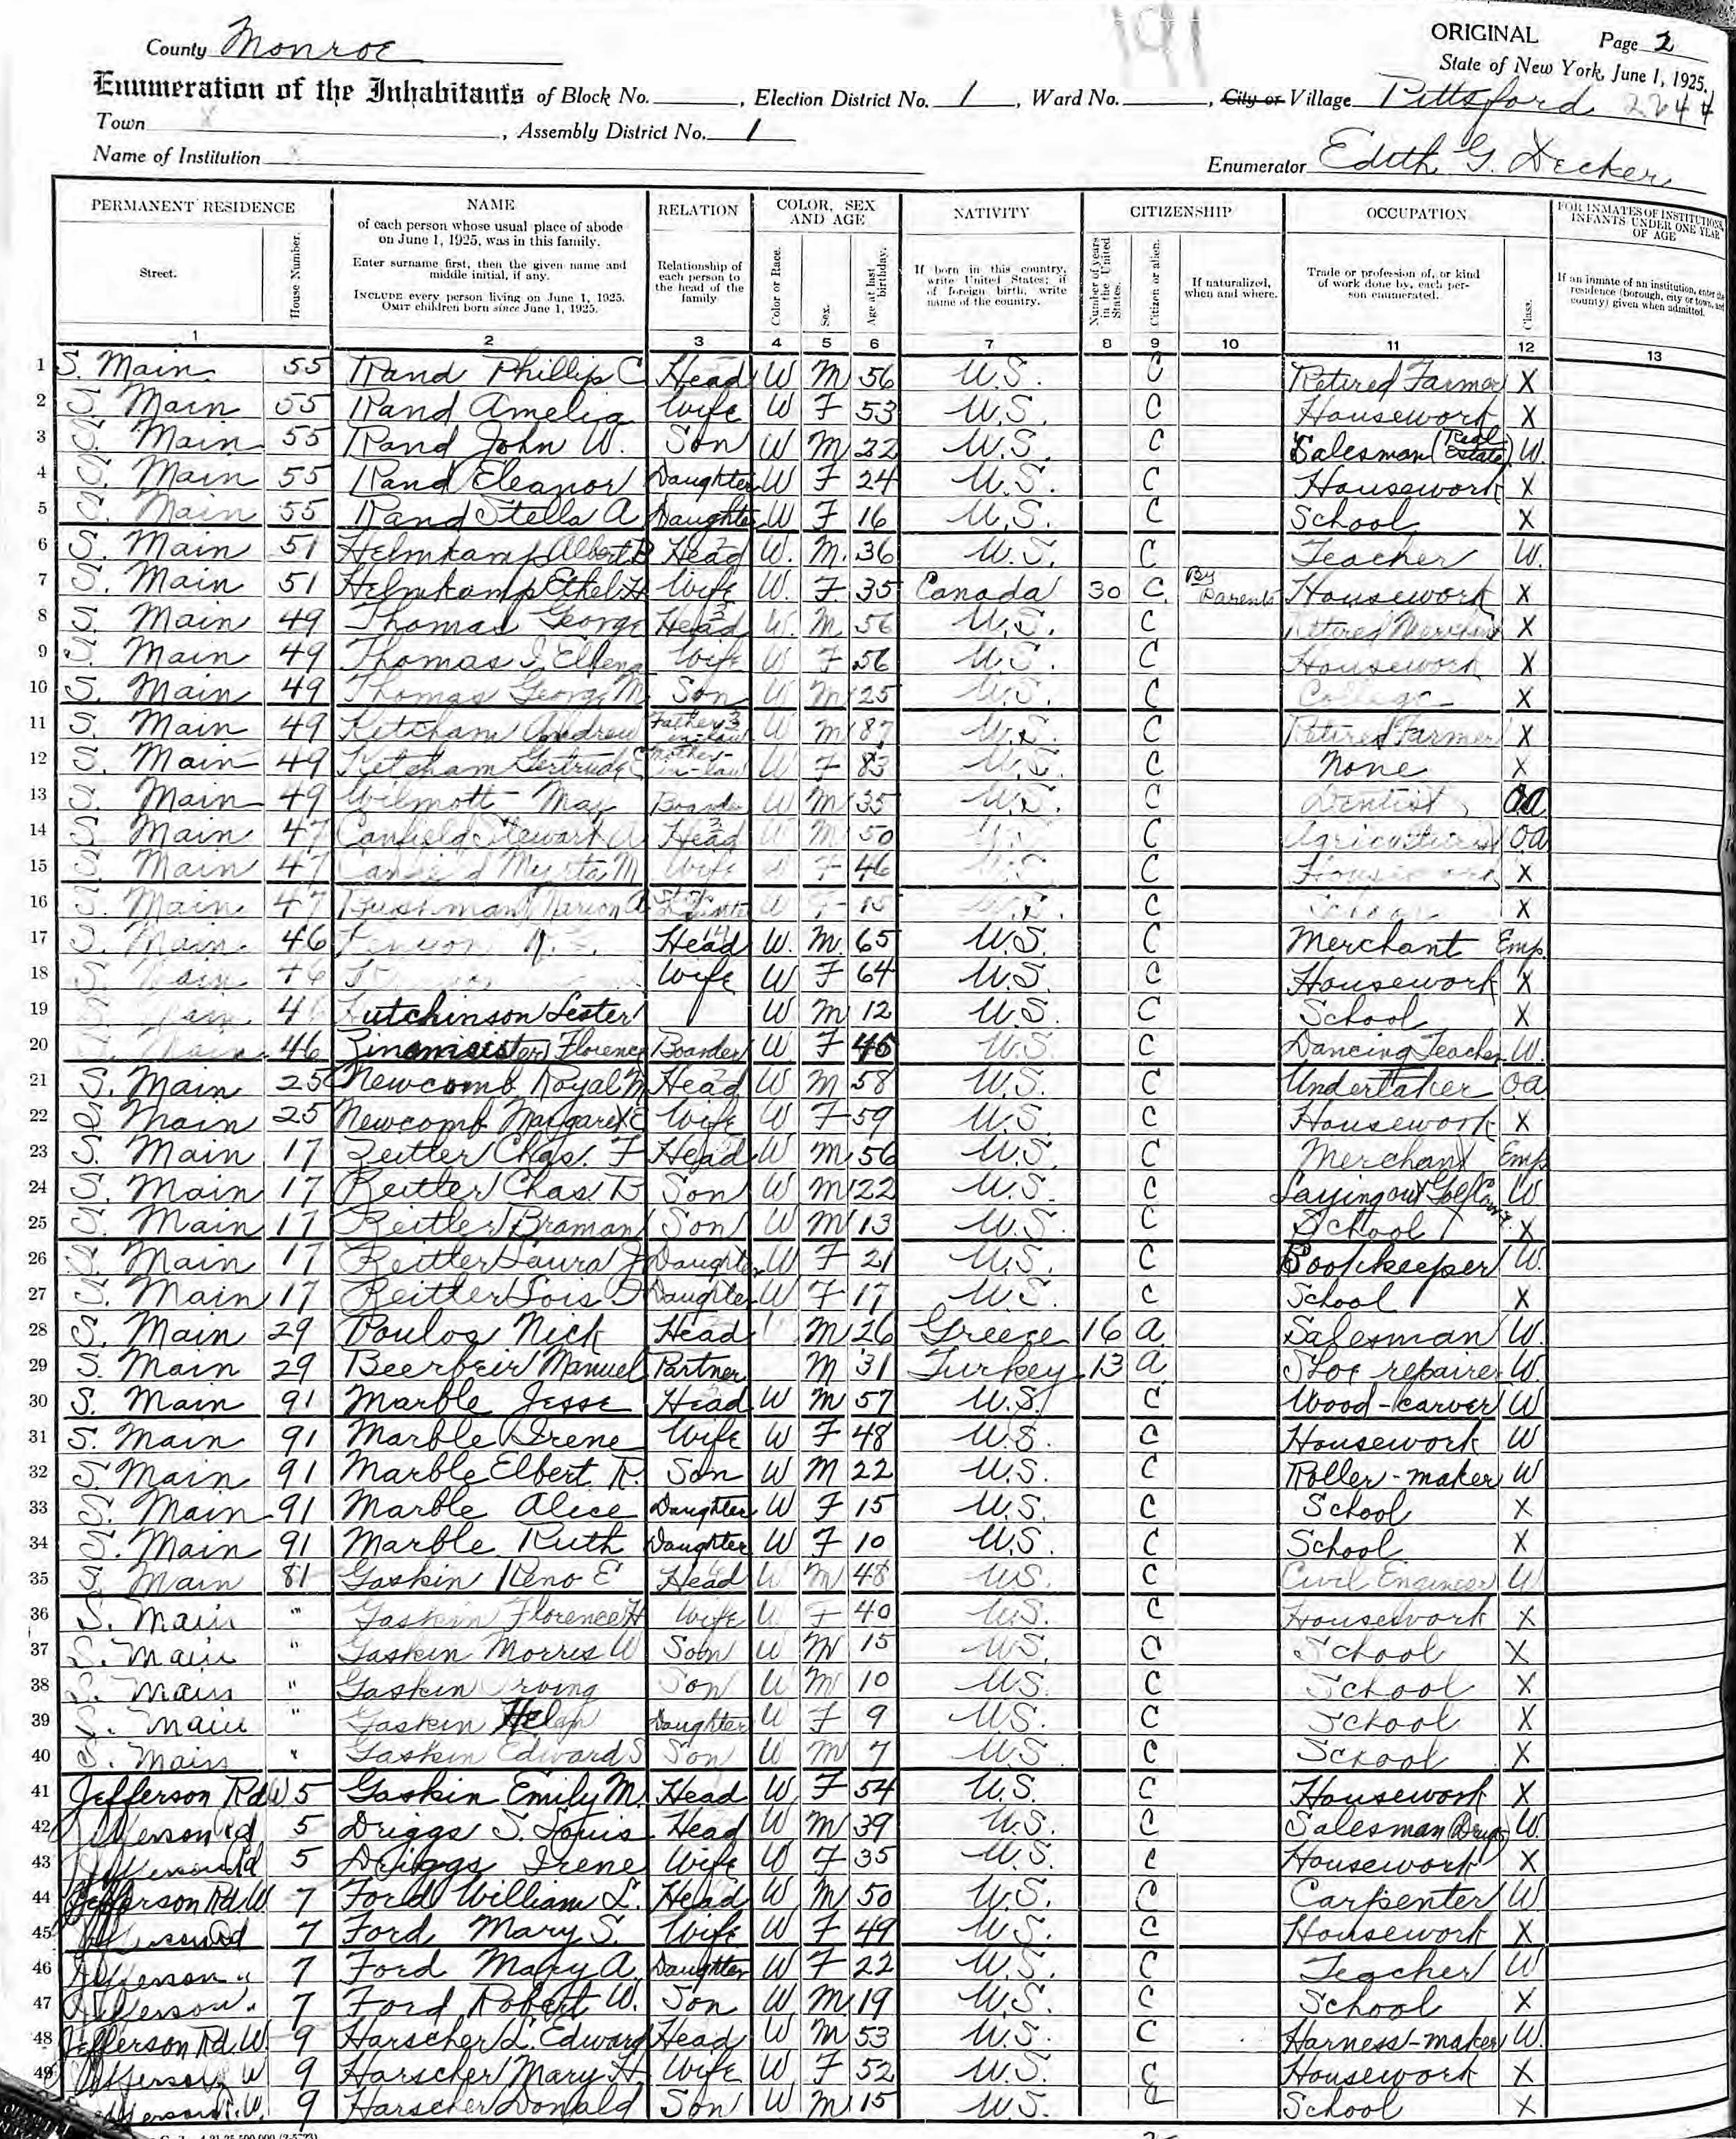 191
ORIGINAL Page 2
County Monroe
State of New York, June 1, 1925.
Enumeration of the Inhabitants of Block No. , Election District No. 1 , Ward No. , City or Village Pittsford 2244
Town , Assembly District No. 1
Name of Institution Enumerator Edith G. Decker
PERMANENT RESIDENCE NAME RELATION COLOR, SEX AND AGE NATIVITY CITIZENSHIP OCCUPATION FOR INMATES OF INSTITUTIONS, INFANTS UNDER ONE YEAR OF AGE
Street. House Number. of each person whose usual place of abode on June 1, 1925, was in this family. Enter surname first, then the given name and middle initial, if any. INCLUDE every person living on June 1, 1925. OMIT children born since June 1, 1925. Relationship of each person to the head of the family Color or Race. Sex. Age at last birthday. If born in this country, write United States; if of foreign birth, write name of the country. Number of years in the United States. Citizen or alien. If naturalized, when and where. Trade or profession of, or kind of work done by, each person enumerated. Class. If an inmate of an institution, enter the residence (borough, city or town, and county) given when admitted.
1 2 3 4 5 6 7 8 9 10 11 12 13
1 S. Main. 55 Rand Phillip C Head W M 56 U.S. C Retired Farmer X
2 S. Main 55 Rand Amelia Wife W F 53 U.S. C Housework X
3 S. Main 55 Rand John W. Son W M 22 U.S. C Salesman (Real Estate) W.
4 S. Main 55 Rand Eleanor Daughter W F 24 U.S. C Housework X
5 S. Main 55 Rand Stella A Daughter W F 16 U.S. C School X
6 S. Main 51 Helmkamp Albert B Head W. M. 36 U.S. C Teacher W.
7 S. Main 51 Helmkamp Ethel H Wife W. F 35 Canada 30 C. By Parents Housework X
8 S. Main 49 Thomas George Head W. M 56 U.S. C Retired Merchant X
9 S. Main 49 Thomas Wife W F 56 U.S. C Housework X
10 S. Main 49 Thomas George M Son W M 25 U.S. C College X
11 S. Main 49 Ketcham Andrew Father-in-law W M 87 U.S. C Retired Farmer X
12 S. Main 49 Ketcham Gertrude Mother-in-law W F 83 U.S. C None X
13 S. Main 49 Wilmott May Boarder W M 35 U.S. C Dentist Oa
14 S. Main 47 Canfield Stewart A Head W M 50 C Oa
15 S. Main 47 Myrta M Wife F 46 C X
16 S. Main 47 Bushman Marion A W F 15 U.S. C School X
17 S. Main 46 Head W. M. 65 U.S. C Merchant Emp
18 S. Main 46 Wife W F 64 U.S. C Housework X
19 Main 46 Hutchinson Lester W M 12 U.S. C School X
20 S. Main 46 Florence Boarder W F 46 U.S. C Dancing Teacher W.
21 S. Main 25 Newcomb Royal M Head W M 58 U.S. C Undertaker Oa
22 S Main 25 Newcomb Margaret E Wife W F 59 U.S. C Housework X
23 S. Main 17 Zeitler Chas. F Head W M 56 U.S. C Merchant Emp
24 S. Main 17 Reitler Chas. B Son W M 22 U.S. C Laying out Golf W
25 S. Main 17 Reitler Braman Son W M 13 U.S. C School X
26 S. Main 17 Reitler Laura J Daughter W F 21 U.S. C Bookkeeper W.
27 S. Main 17 Reitler Lois Daughter W F 17 U.S. C School X
28 S. Main 29 Poulos Nick Head M 26 Greece 16 a Salesman W.
29 S. Main 29 Manuel Partner M 31 Turkey 13 a Shoe repairer W.
30 S. Main 91 Marble Jesse Head W M 57 U.S. C Wood-carver W
31 S. Main 91 Marble Irene Wife W F 48 U.S. C Housework W
32 S. Main 91 Marble Elbert R. Son W M 22 U.S. C Roller-maker W
33 S. Main 91 Marble Alice Daughter W F 15 U.S. C School X
34 S. Main 91 Marble Ruth Daughter W F 10 U.S. C School X
35 S. Main 81 Gaskin Reno E Head W M 48 U.S. C Civil Engineer W
36 S. Main " Gaskin Florence H Wife W F 40 U.S. C Housework X
37 S. Main " Gaskin Morris W Son W M 15 U.S. C School X
38 S. Main " Gaskin Irving Son W M 10 U.S. C School X
39 S. Main " Gaskin Helen Daughter W F 9 U.S. C School X
40 S. Main " Gaskin Edward S Son W M 7 U.S. C School X
41 Jefferson Rd W 5 Gaskin Emily M. Head W F 54 U.S. C Housework X
42 Jefferson Rd 5 Driggs S. Louis Head W M 39 U.S. C Salesman (Drugs) W.
43 Jefferson Rd 5 Driggs Irene Wife W F 35 U.S. C Housework X
44 Jefferson Rd W 7 Ford William L. Head W M 50 U.S. C Carpenter W
45 Jefferson Rd 7 Ford Mary S. Wife W F 49 U.S. C Housework X
46 Jefferson " 7 Ford Mary A. Daughter W F 22 U.S. C Teacher W
47 Jefferson " 7 Ford Robert W. Son W M 19 U.S. C School X
48 Jefferson Rd. W. 9 Harscher L. Edward Head W M 53 U.S. C Harness-maker W.
49 Jefferson W 9 Harscher Mary H. Wife W F 52 U.S. C Housework X
Jefferson R. W. 9 Harscher Donald Son W M 15 U.S. C School X